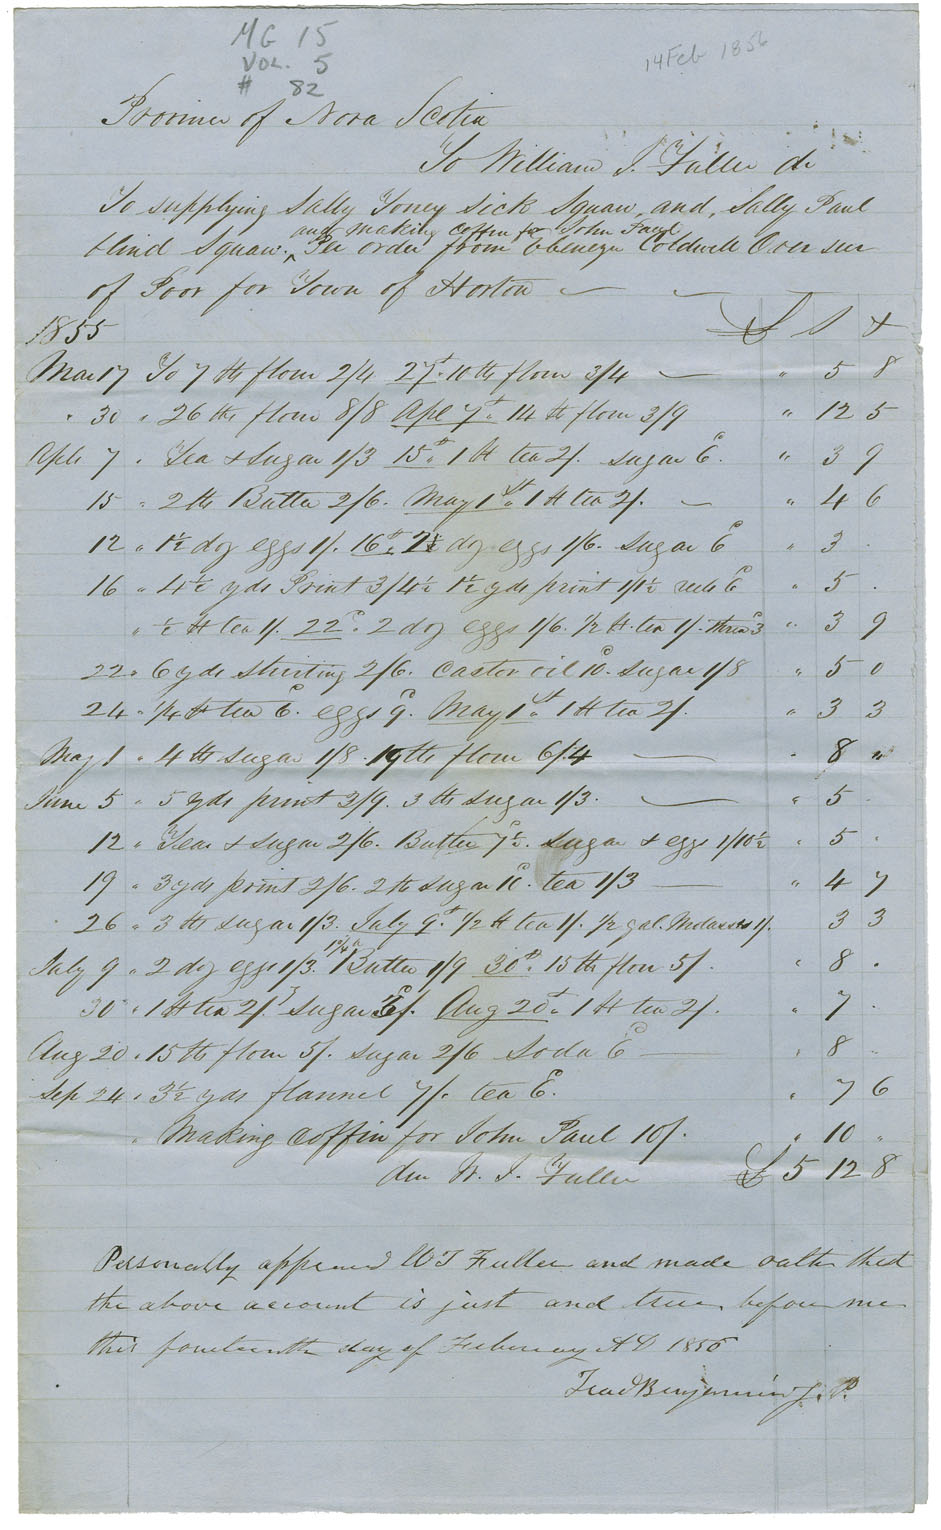 MG 15
VOL. 5
# 82
14 Feb 1856
Province of Nova Scotia
To William J. Fuller dr
To supplying Sally Toney sick Squaw, and, Sally Paul
and making coffin for John Paul
blind Squaw. ^ Per order from Ebenezer Coldwell Over seer
of Poor for Town of Horton
1855 £ S d
Mar 17 To 7 lb flour 2/4 27th 10 lb flour 3/4 — " 5 8
" 30 " 26 lb flour 8/8 Apl 7th " 14 lb flour 3/9 " 12 5
Apl 7 " Tea & Sugar 1/3 15th " 1 lb tea 2/. Sugar 6d. " 3 9
15 " 2 lb Butter 2/6. May 1st " 1 lb tea 2/. — " 4 6
12 " 1½ doz eggs 1/. 16th " doz eggs 1/6. Sugar 6d " 3
16 " 4½ yds Print 3/4½ 1½ yds print 1/1½ reels 6d " 5 .
" ½ lb tea 1/. 22d " 2 doz eggs 1/6. 1/2 lb tea 1/. thread 3 " 3 9
22 " 6 yds Shirting 2/6. Castor oil 10d. Sugar 1/8 " 5 0
24 " 1/4 lb tea 6d. eggs 9d. May 1st " 1 lb tea 2/. " 3 3
May 1 " 4 lb sugar 1/8 19 lb flour 6/4 — " 8 "
June 5 " 5 yds print 3/9. 3 lb sugar 1/3. — " 5 .
12 " Tea & sugar 2/6. Butter 7½d. sugar & eggs 1/10½ " 5 .
19 " 3 yds print 2/6. 2 lb sugar 10d. tea 1/3 — " 4 7
26 " 3 lb sugar 1/3. July 9th 1/2 lb tea 1/. 1/2 gal. Molasses 1/. 3 3
July 9 " 2 doz eggs 1/3. Butter 1/9 30th " 15 lb flour 5/. " 8 .
30 " 1 lb tea 2/. Sugar Aug 20th " 1 lb tea 2/. " 7 .
Aug 20 " 15 lb flour 5/. Sugar 2/6 Soda 6d — " 8 ..
Sep 24 " 3½ yds flannel 7/. tea 6d. " 7 6
" Making Coffin for John Paul 10/. " 10 "
W. J. Fuller £ 5 12 8
Personally appeared W J Fuller and made oath that
the above account is just and true, before me
this fourteenth day of February AD 1856
Benjamin J. P.